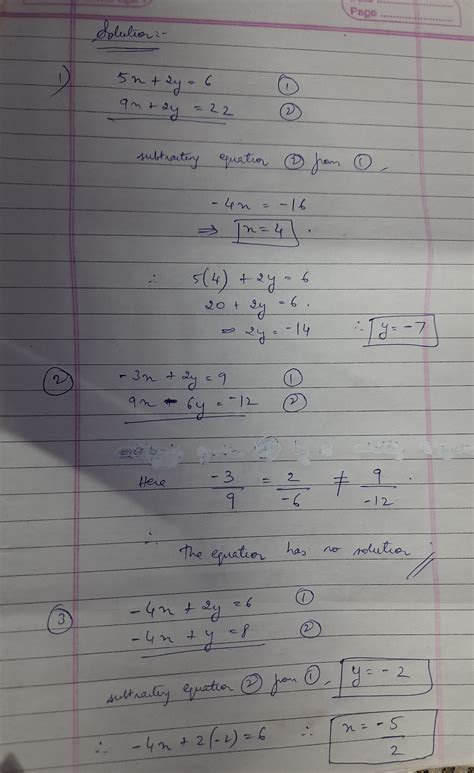 Page
Solution :-
1) 5x + 2y = 6 ①
9x + 2y = 22 ②
subtracting equation ② from ①,
-4x = -16
⇒ x = 4 .
∴ 5(4) + 2y = 6
20 + 2y = 6 .
⇒ 2y = -14 ∴ y = -7
② -3x + 2y = 9 ①
9x - 6y = -12 ②
Here -3/9 = 2/-6 ≠ 9/-12 .
∴ The equation has no solution //
③ -4x + 2y = 6 ①
-4x + y = 8 ②
subtracting equation ② from ①, y = -2
∴ -4x + 2(-2) = 6 ∴ x = -5/2